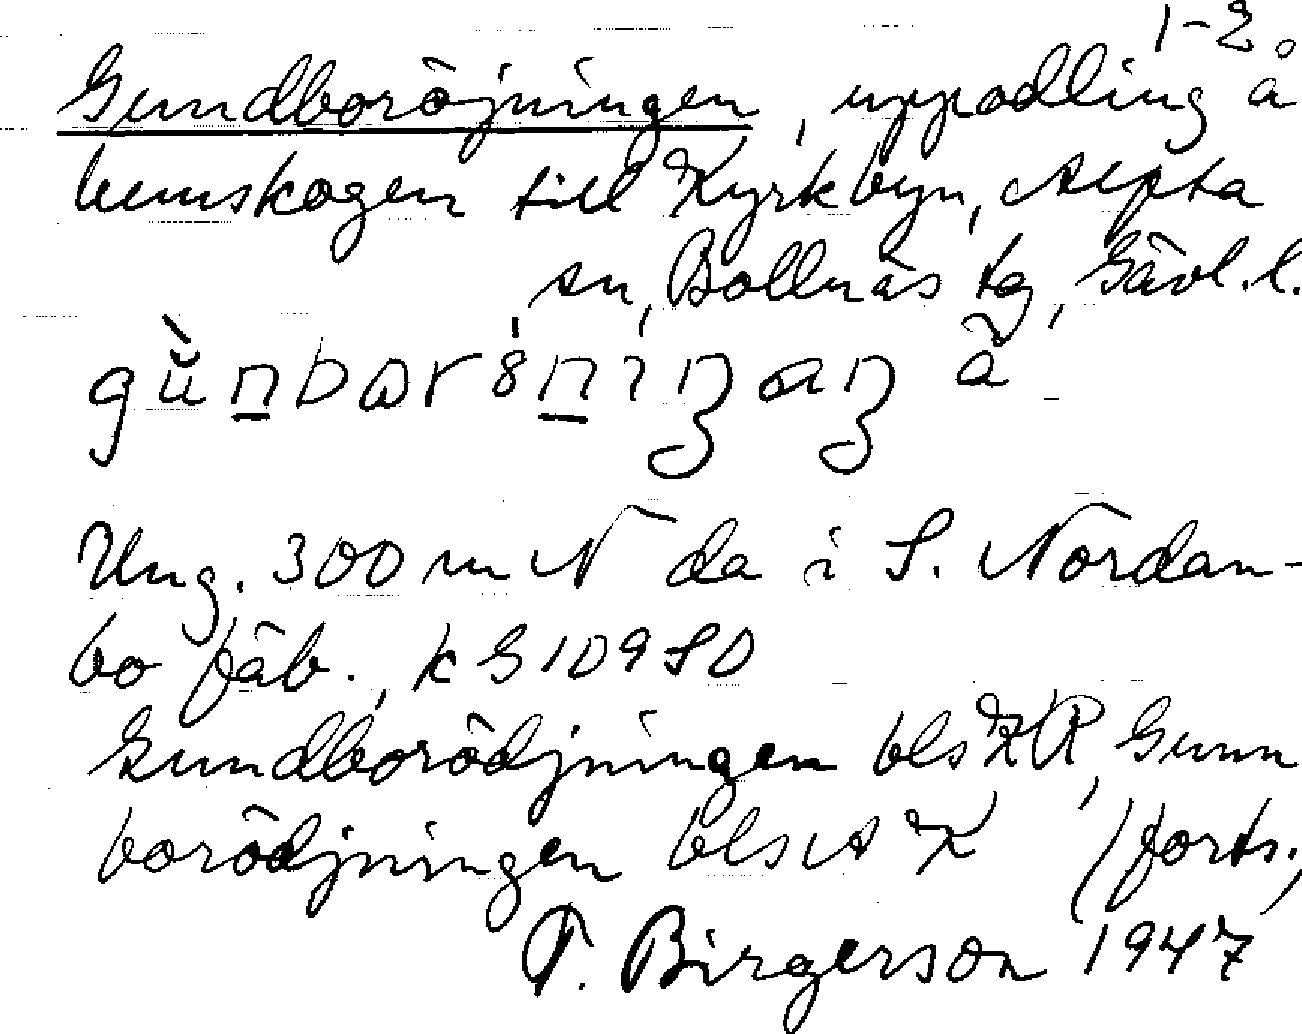 1-2.
Gundboröjningen, uppodling å
hemskogen till Kyrkbyn, Alfta
sn, Bollnäs tg, Gävl. l.
Ung. 300 m N da i S. Nordan-
bo fäb., k G 109 SO
Gundborödjningen bls ZR, Gunn
borödjningen blsst K (forts.)
T. Birgerson 1947